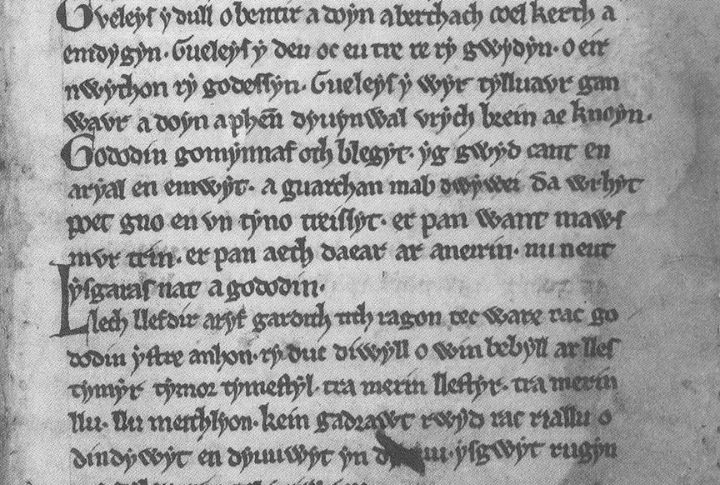 Gueleys y dull o bentir a doyn aberthach coel kerth a
emdygyn. Gueleys y deu oc eu tre re ry gwydyn. o eir
nwython ry godessyn. Gueleys y wyr tylluavr gan
wavr a doyn a phen dyuynwal vrych brein ae knoyn.
Gododin gomynnaf oth blegyt. yg gwyd cant en
aryal en emwyt. a guarchan mab dwywei da wrhyt
poet gno en vn tyno treissyt. er pan want maws
mvr trin. er pan aeth daear ar aneirin. nu neut
ysgaras nat a gododin.
Llech llefdir aryf gardith tith ragon tec ware rac go
dodin ystre anhon. ry duc diwyll o win bebyll ar lles
tymyr tymor tymestyl. tra merin llestyr. tra merin
llu. llu meithlyon. kein gadrawt rwyd rac riallu o
dindywyt en dyuuwyt yn ysgwyt rugyn